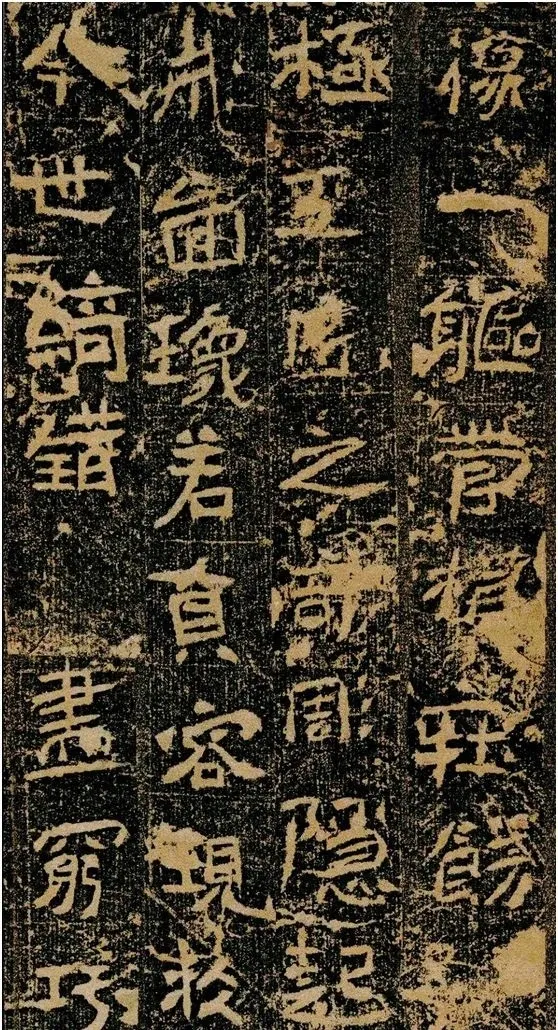 像一軀營構莊飾
極工匠之奇彫隱起
瓌若真容現於
今世錡錯盡窮巧